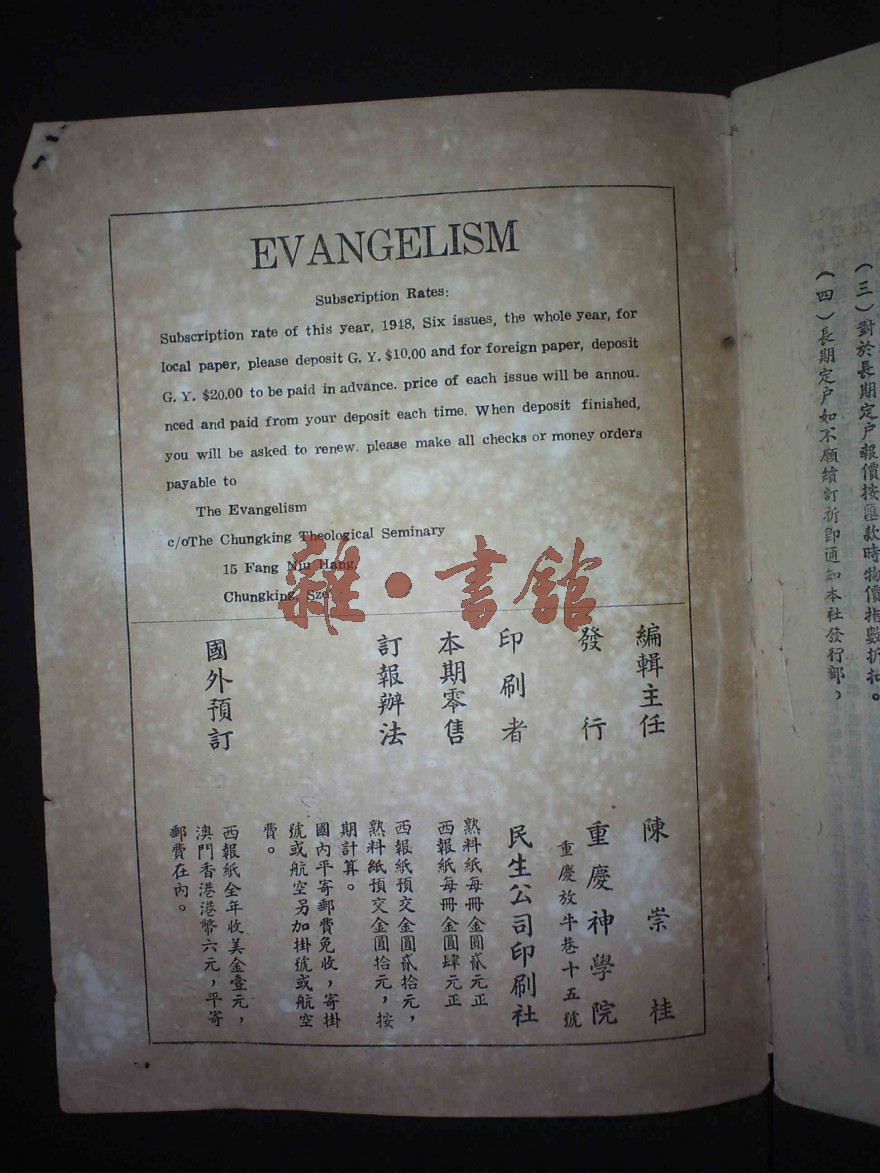 EVANGELISM
Subscription Rates:
Subscription rate of this year, 1948, Six issues, the whole year, for
local paper, please deposit G. Y. $10.00 and for foreign paper, deposit
G. Y. $20.00 to be paid in advance. price of each issue will be annou.
nced and paid from your deposit each time. When deposit finished,
you will be asked to renew. please make all checks or money orders
payable to
The Evangelism
c/oThe Chungking Theological Seminary
15 Fang Niu Hang,
Chungking, Sze.
雜·書館
編輯主任 陳崇桂
發行 重慶神學院
重慶放牛巷十五號
印刷者 民生公司印刷社
本期零售 熟料紙每冊金圓貳元正
西報紙每冊金圓肆元正
訂報辦法 西報紙預交金圓貳拾元，
熟料紙預交金圓拾元，按
期計算。
國內平寄郵費免收，寄掛
號或航空另加掛號或航空
費。
國外預訂 西報紙全年收美金壹元，
澳門香港港幣六元，平寄
郵費在內。
（三）對於長期定户報價按匯款時物價指數折扣。
（四）長期定户如不願續訂祈即通知本社發行部，